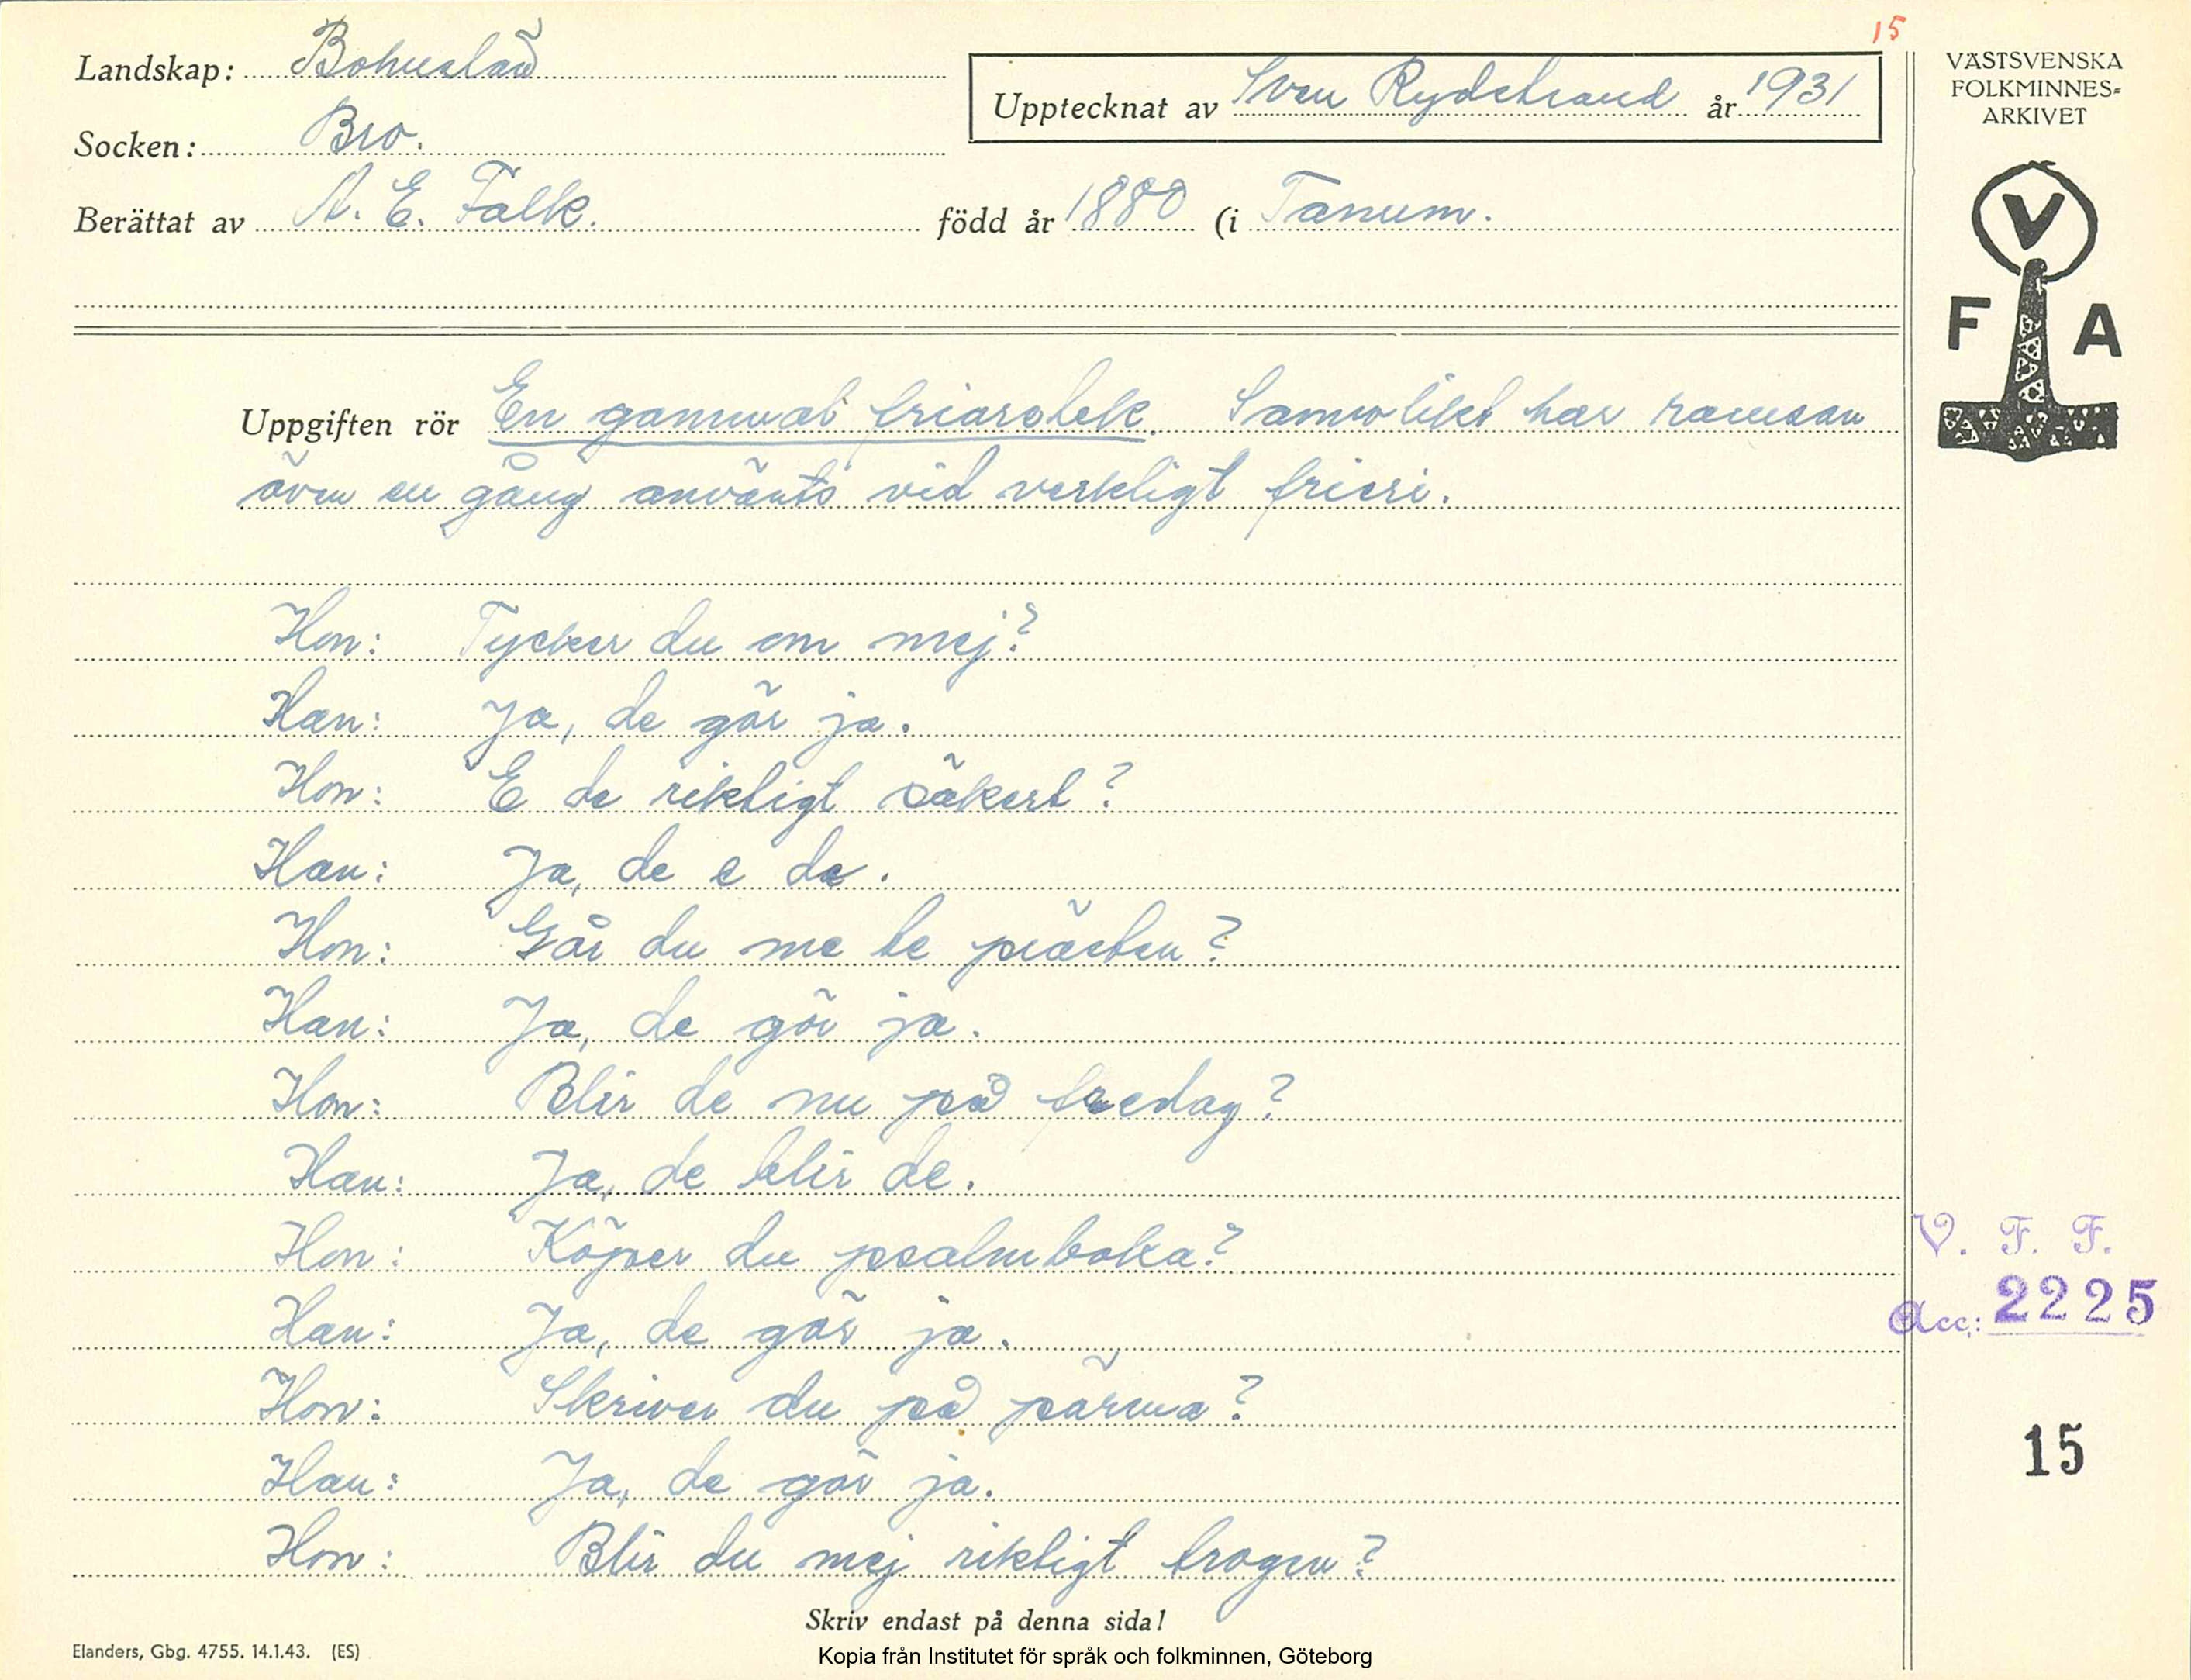 15
Landskap: Bohuslän
Upptecknat av Sven Rydstrand år 1931
Socken: Bro.
Berättat av A. E. Falk. född år 1880 (i Tanum.
VÄSTSVENSKA
FOLKMINNES=
ARKIVET
V
F A
Uppgiften rör En gammal friarelek. Sannolikt har ramsan
även en gång använts vid verkligt frieri.
Hon: Tycker du om mej?
Han: Ja, de gör ja.
Hon: E de riktigt säkert?
Han: Ja, de e de.
Hon: Går du me te prästen?
Han: Ja, de gör ja.
Hon: Blir de nu på fredag?
Han: Ja, de blir de.
Hon: Köper du psalmboka?
Han: Ja, de gör ja.
Hon: Skriver du på pärma?
Han: Ja, de gör ja.
Hon: Blir du mej riktigt trogen?
V. F. F.
Acc: 2225
15
Skriv endast på denna sida!
Elanders, Gbg. 4755. 14.1.43. (ES)
Kopia från Institutet för språk och folkminnen, Göteborg